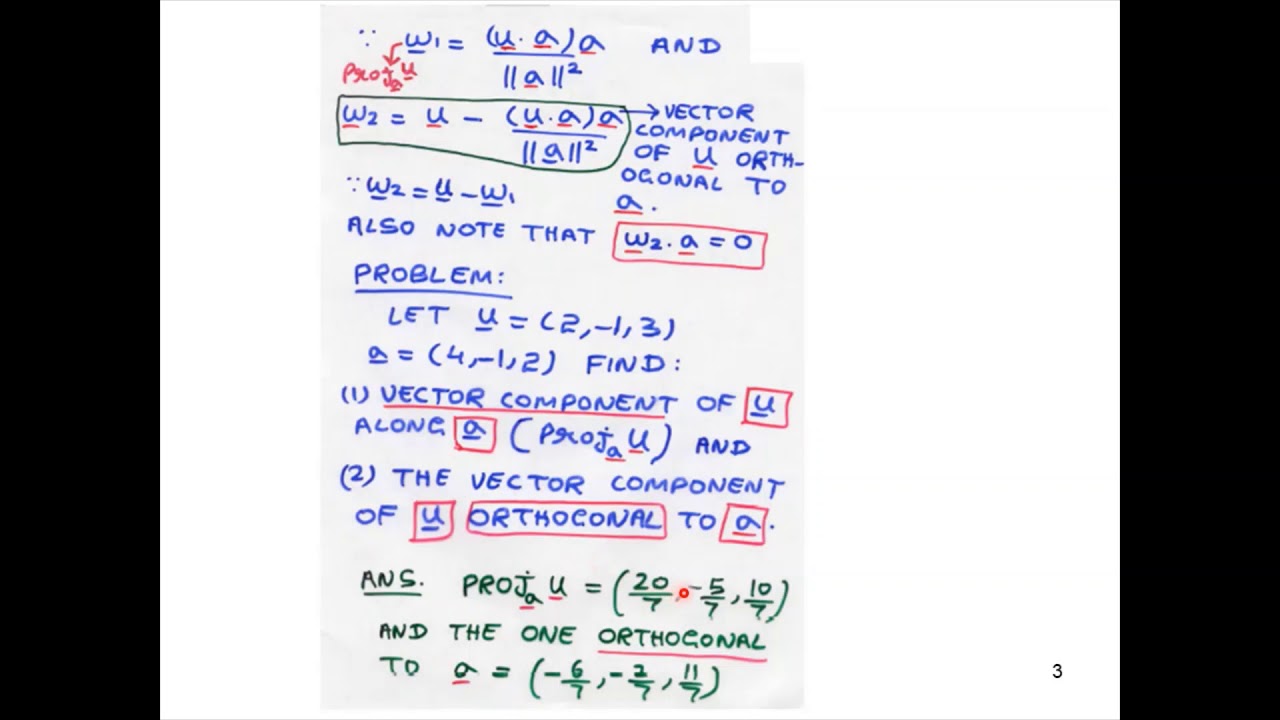 ∵ w1 = (u · a) a / ||a||² AND
proj_a u
w2 = u − (u · a) a / ||a||² → VECTOR
COMPONENT
OF u ORTH-
OGONAL TO
a.
∵ w2 = u − w1
ALSO NOTE THAT w2 · a = 0
PROBLEM:
LET u = (2, -1, 3)
a = (4, -1, 2) FIND:
(1) VECTOR COMPONENT OF u
ALONG a (PROJ_a u) AND
(2) THE VECTOR COMPONENT
OF u ORTHOGONAL TO a.
ANS. PROJ_a u = (20/7, -5/7, 10/7)
AND THE ONE ORTHOGONAL
TO a = (-6/7, -2/7, 11/7)
3